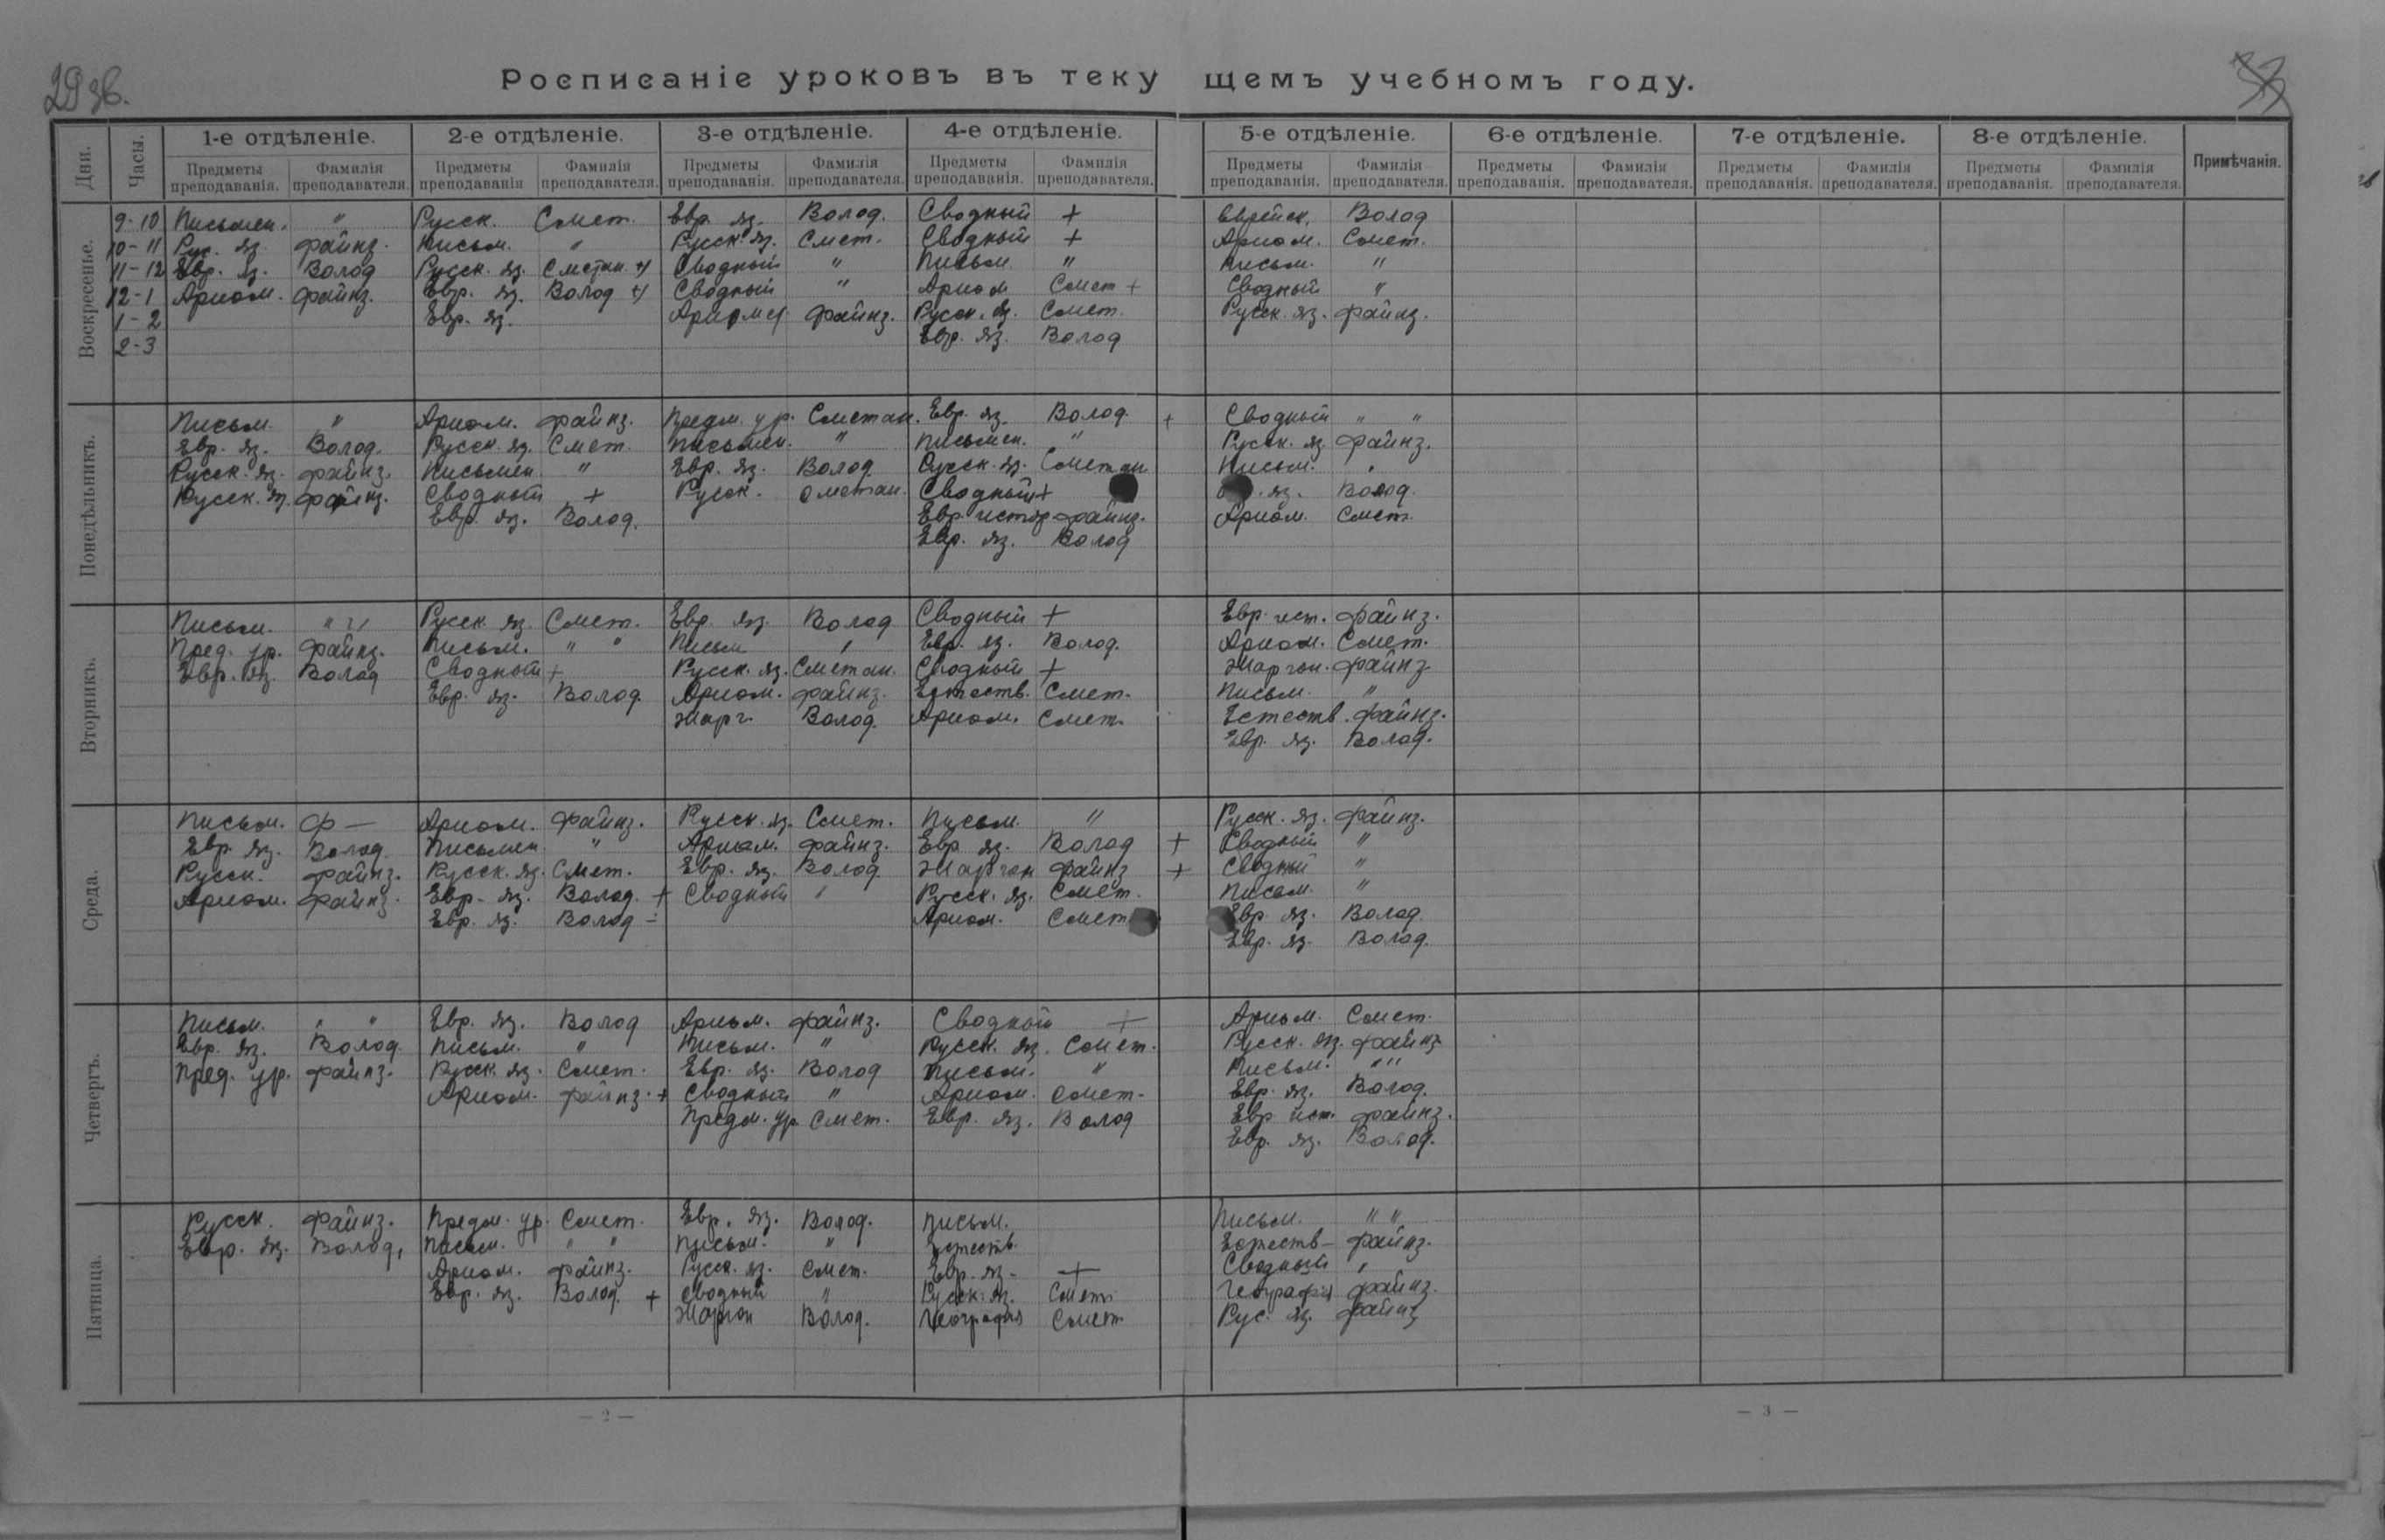 29 зв.
Росписаніе уроковъ въ теку щемъ учебномъ году.
Дни. Часы. 1-е отдѣленіе. 2-е отдѣленіе. 3-е отдѣленіе. 4-е отдѣленіе. 5-е отдѣленіе. 6-е отдѣленіе. 7-е отдѣленіе. 8-е отдѣленіе. Примѣчанія.
Предметы преподаванія. Фамилія преподавателя. Предметы преподаванія Фамилія преподавателя. Предметы преподаванія. Фамилія преподавателя. Предметы преподаванія. Фамилія преподавателя. Предметы преподаванія. Фамилія преподавателя. Предметы преподаванія. Фамилія преподавателя. Предметы преподаванія. Фамилія преподавателя. Предметы преподаванія. Фамилія преподавателя.
Воскресенье.
9-10 Письмен. " Русск. Смет. Евр. яз. Волод. Сводный + Еврейск. Волод
10-11 Рус. яз. Файнз. Письм. " Русск. яз. Смет. Сводный + Ариѳм. Смет.
11-12 Евр. яз. Волод Русск. яз. Сметан. +) Сводный " Письм. " Письм. "
12-1 Ариѳм. Файнз. Евр. яз. Волод +) Сводный " Ариѳм Смет + Сводный "
1-2 Евр. яз. Файнз. Русск. яз. Смет. Русск. яз. Файнз.
2-3 Евр. яз. Волод
Понедѣльникъ.
Письм. " Ариѳм. Файнз. Предм. ур. Сметан. Евр. яз. Волод. + Сводный " "
Евр. яз. Волод. Русск. яз. Смет. Письмен. " Письмен. " Русск. яз. Файнз.
Русск. яз. Файнз. Письмен " Евр. яз. Волод Русск. яз. Сметан Письм. "
Русск. яз. Файнз. Сводный + Русск. Сметан. Сводный + яз. Волод.
Евр. яз. Волод. Евр. истор Файнз. Ариѳм. Смет.
Евр. яз. Волод
Вторникъ.
Письм. " Русск. яз. Смет. Евр. яз. Волод Сводный + Евр. ист. Файнз.
Пред. ур. Файнз. Письм. " " Письм " Евр. яз. Волод. Ариѳм. Смет.
Евр. яз. Волод Сводный + Русск. яз. Сметан. Сводный + Жаргон. Файнз
Евр. яз. Волод. Ариѳм. Файнз. Естеств. Смет. Письм. "
Жарг. Волод. Ариѳм. Смет. Естеств. Файнз.
Евр. яз. Волод.
Среда.
Письм. Ф — Ариѳм. Файнз. Русск. яз. Смет. Письм. " Русск. яз. Файнз.
Евр. яз. Волод. Письмен " Ариѳм. Файнз. Евр. яз. Волод + Сводный "
Русск. Файнз. Русск. яз. Смет. Евр. яз. Волод Жаргон Файнз + Сводный "
Ариѳм. Файнз. Евр. яз. Волод. + Сводный " Русск. яз. Смет. Письм. "
Евр. яз. Волод - Ариѳм. Смет Евр. яз. Волод.
Евр. яз. Волод.
Четвергъ.
Письм. " " Евр. яз. Волод Ариѳм. Файнз. Сводный + Ариѳм. Смет.
Евр. яз. Волод. Письм. " Письм. " Русск. яз. Смет. Русск. яз. Файнз
Пред. ур. Файнз. Русск. яз. Смет. Евр. яз. Волод Письм. " Письм. "
Ариѳм. Файнз. + Сводный " Ариѳм. Смет. Евр. яз. Волод.
Предм. ур. Смет. Евр. яз. Волод Евр ист. Файнз.
Евр. яз. Волод.
Пятница.
Русск. Файнз. Предм. ур. Смет. Евр. яз. Волод. Письм. Письм. " "
Евр. яз. Волод. Письм. " " Письм. " Естеств. Естеств- Файнз.
Ариѳм. Файнз. Русск. яз. Смет. Евр. яз. + Сводный "
Евр. яз. Волод. + Сводный " Русск. яз. Смет. Географія Файнз.
Жаргон Волод. Географія Смет Рус. яз. Файнз
— 2 — — 3 —